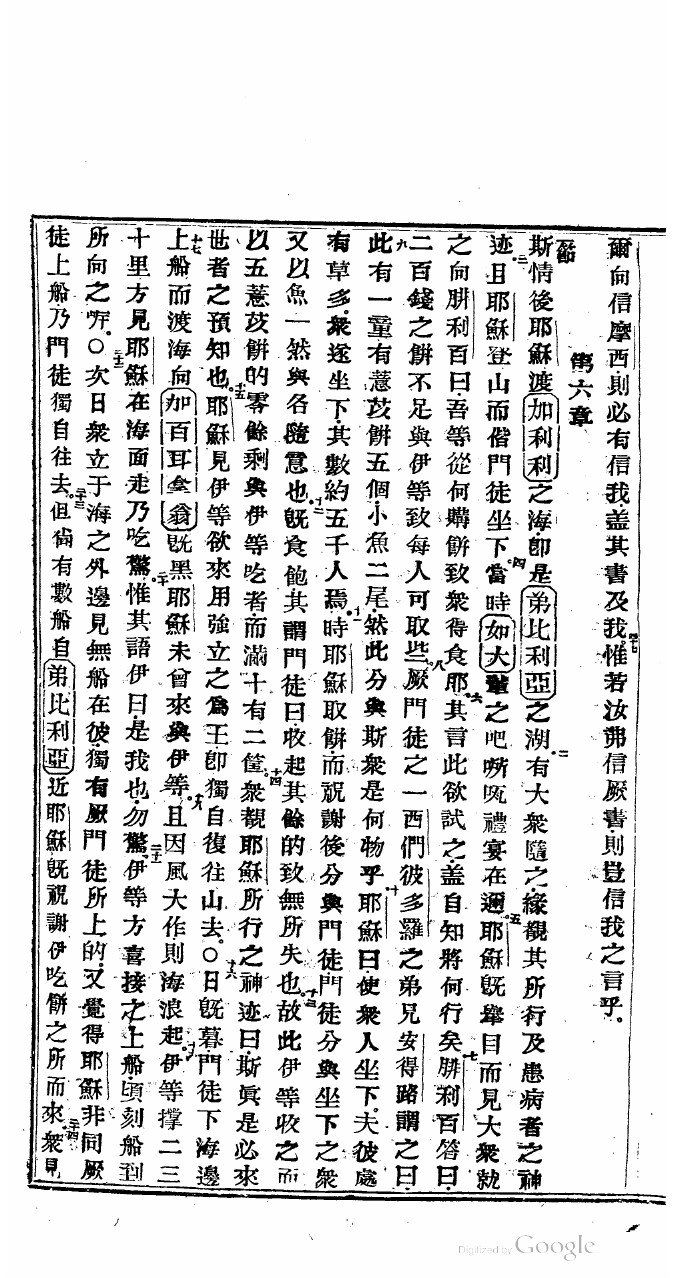 爾向信摩西則必有信我盖其書及我四七惟若汝弗信厥書則豈信我之言乎。
第六章
一節斯情後耶穌渡加利利之海卽是弟比利亞之湖二有大衆隨之緣覩其所行及患病者之神
迹三且耶穌登山而偕門徒坐下四當時如大輩之吧嘶㕽禮宴在邇五耶穌旣舉目而見大衆就
之向腓利百曰吾等從何購餅致衆得食耶六其言此欲試之盖自知將何行矣七腓利百答曰
二百錢之餅不足與伊等致每人可取些八厥門徒之一西們彼多羅之弟兄安得路謂之曰
九此有一童有薏苡餅五個小魚二尾然此分與斯衆是何物乎十耶穌曰使衆人坐下夫彼處
有草多衆遂坐下其數約五千人焉十一時耶穌取餅而祝謝後分與門徒門徒分與坐下之衆
又以魚一然與各隨意也十二旣食飽其謂門徒曰收起其餘的致無所失也十三故此伊等收之而
以五薏苡餅的零餘剩與伊等吃者而滿十有二筐十四衆覩耶穌所行之神迹曰斯眞是必來
世者之預知也十五耶穌見伊等欲來用強立之爲王卽獨自復往山去。〇十六日旣暮門徒下海邊
十七上船而渡海向加百耳拿翁旣黑耶穌未曾來與伊等十八且因風大作則海浪起十九伊等撑二三
十里方見耶穌在海面走乃吃驚二十惟其語伊曰是我也勿驚二十一伊等方喜接之上船頃刻船到
所向之所。〇二十二次日衆立于海之外邊見無船在彼獨有厥門徒所上的又覺得耶穌非同厥
徒上船乃門徒獨自往去二十三但尚有數船自弟比利亞近耶穌旣祝謝伊吃餅之所而來二十四衆見
Digitized by Google